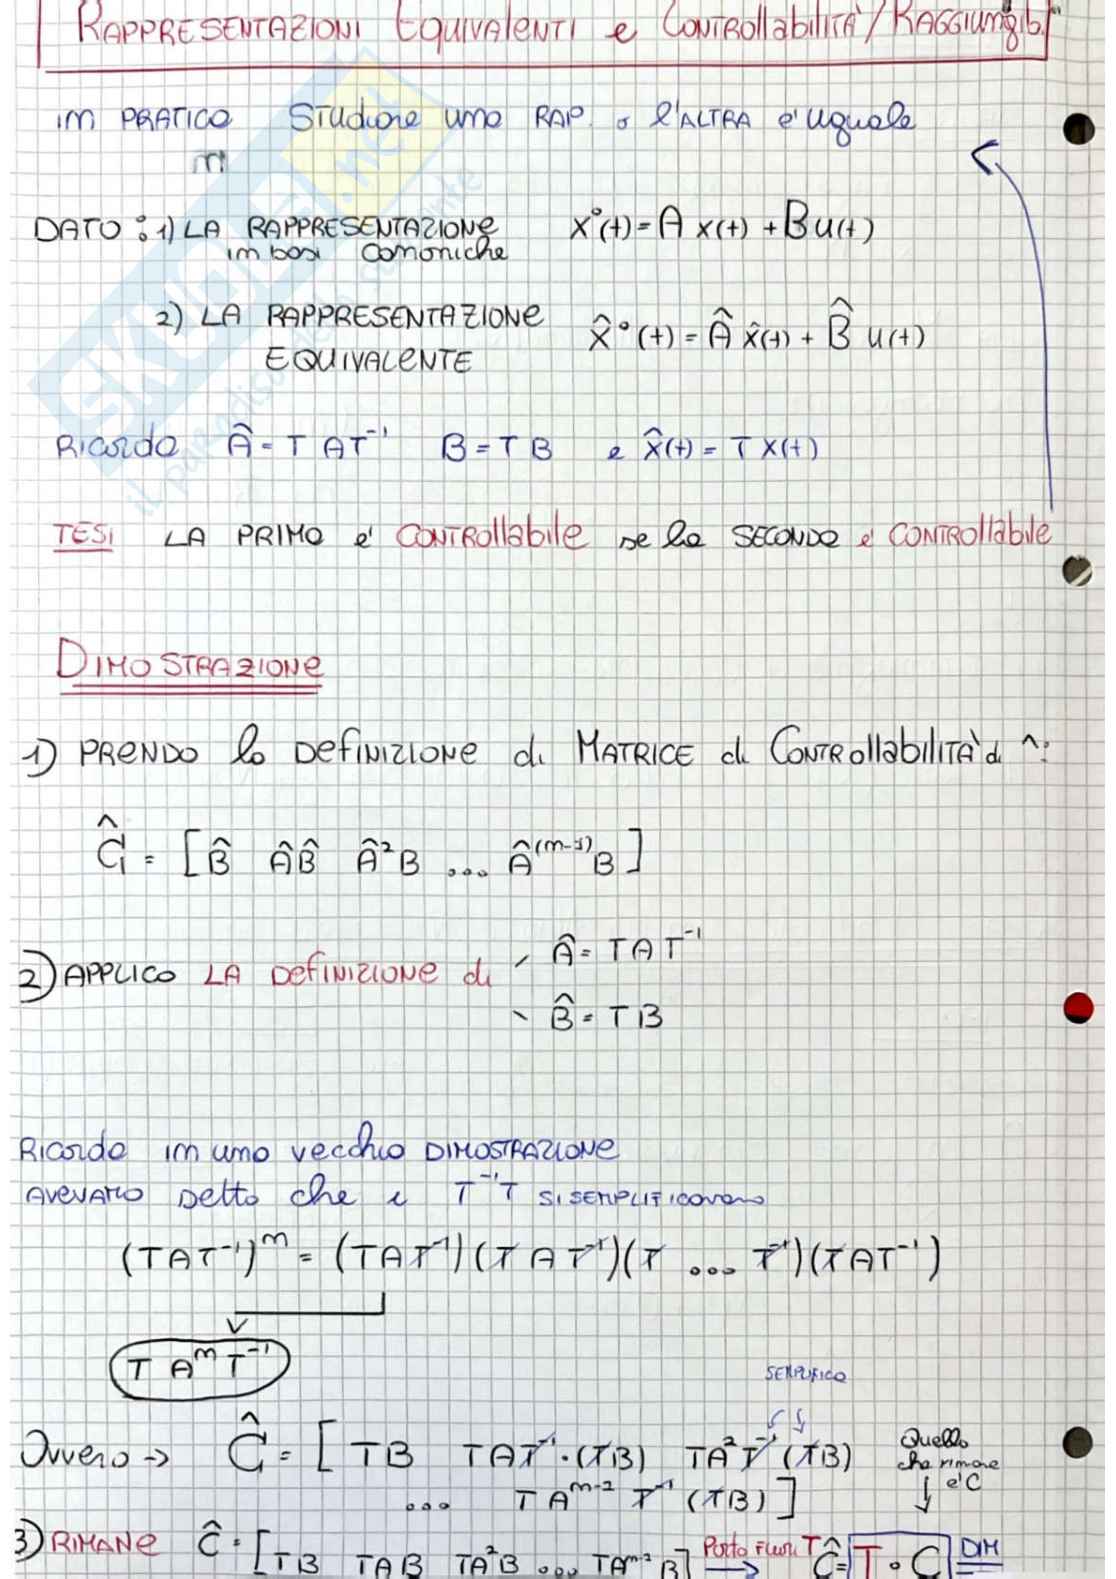 RAPPRESENTAZIONI EQUIVALENTI e CONTROllabiliTA'/RAGGIUNgib.
in PRATICA STUdiare una RAP. o l'ALTRA e' uguale
DATO: 1) LA RAPPRESENTAZIONE x°(t) = A x(t) + B u(t)
in basi canoniche
2) LA RAPPRESENTAZIONE x̂°(t) = Â x̂(t) + B̂ u(t)
EQUIVALENTE
Ricorda Â = T A T⁻¹ B = T B e x̂(t) = T x(t)
TESI LA PRIMA e' CONTROllabile se la SECONDA e' CONTROllabile
DIMOSTRAZIONE
1) PRENDO la DEFINIZIONE di MATRICE di CONTROllabiliTA' di ^:
Ĉ = [B̂ ÂB̂ Â²B ... Â⁽ⁿ⁻¹⁾B]
2) APPLICO LA DEFINIZIONE di - Â = TAT⁻¹
- B̂ = TB
Ricorda in una vecchia DIMOSTRAZIONE
AVEVAMO DETTO che i T⁻¹T SI SEMPLIFICAVANO
(TAT⁻¹)ⁿ = (TAT⁻¹)(TAT⁻¹)(T ... T⁻¹)(TAT⁻¹)
T Aⁿ T⁻¹
SEMPLIFICO
Ovvero → Ĉ = [TB TAT⁻¹·(TB) TA²T⁻¹(TB) Quello
che rimane
... TAⁿ⁻¹ T⁻¹ (TB)] e' C
3) RIMANE Ĉ = [TB TAB TA²B ... TAⁿ⁻¹B] Porto FUORI T → Ĉ = T · C DIM
SKUOLA.net
il paradiso dello studente